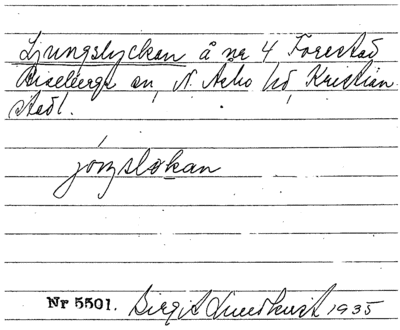 Ljungslyckan å nr 4 Forestad
Riseberga sn, N. Åsbo hd, Kristian
stads l.
jöŋslokan
Nr 5501. Birgit Lundkvist 1935